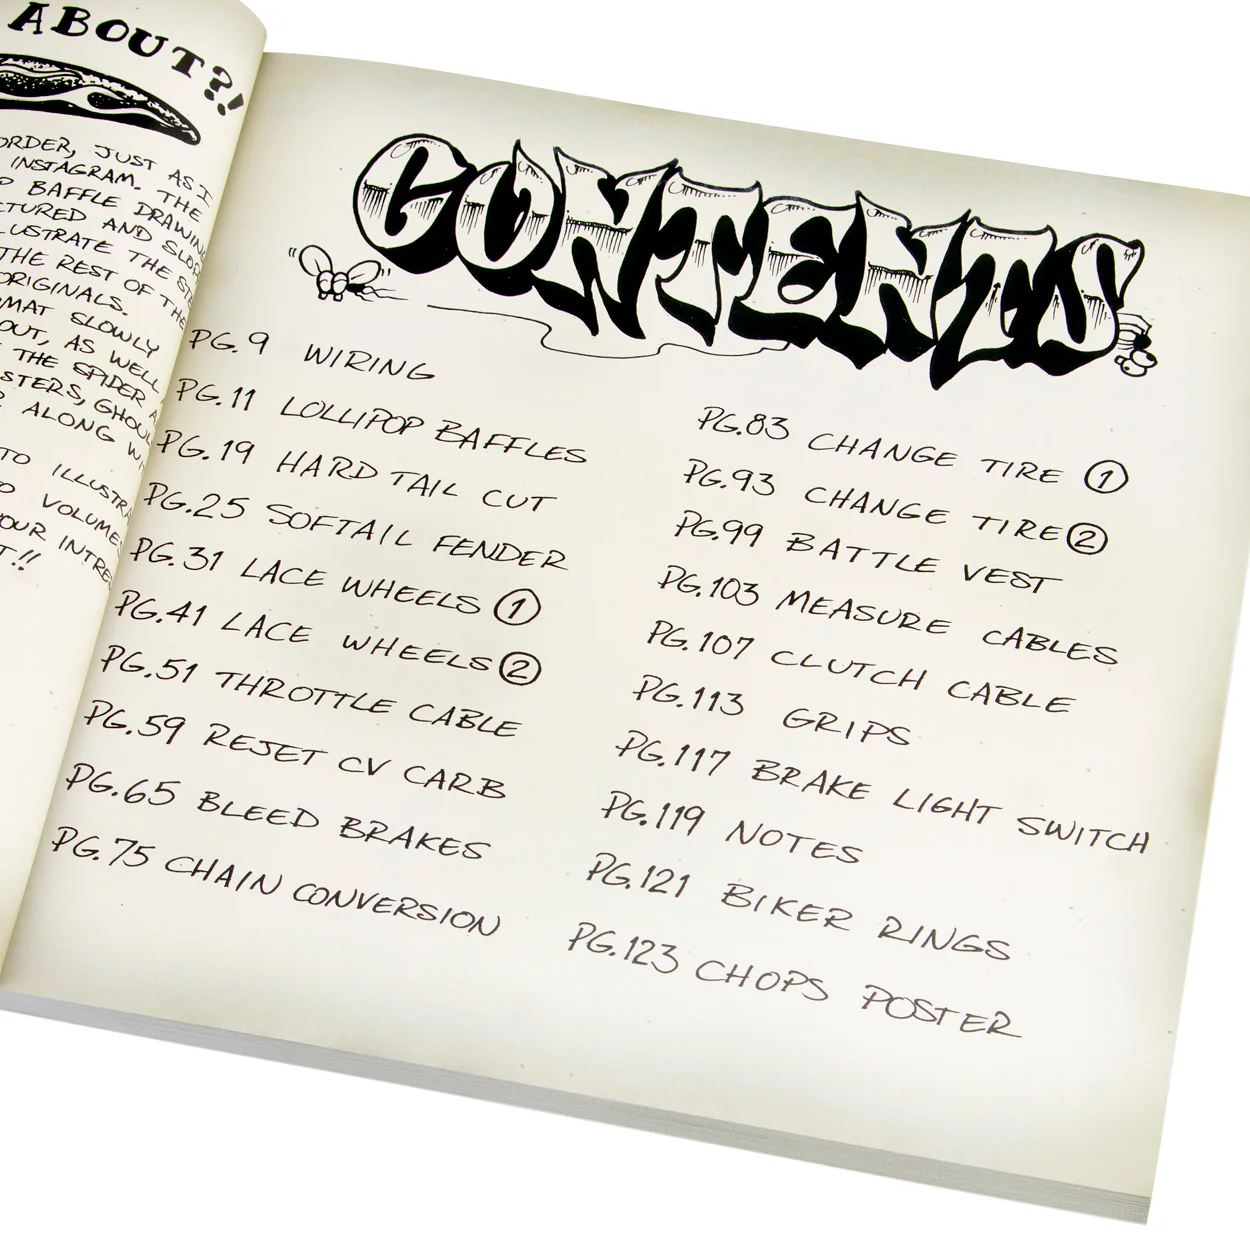 ABOUT?!
ORDER, JUST AS I
INSTAGRAM. THE
BAFFLE DRAWING
AND
THE
THE REST OF THE
ORIGINALS.
SLOWLY
OUT, AS WELL
THE SPIDER
ALONG
TO
VOLUME
YOUR
CONTENTS
PG.9 WIRING
PG.11 LOLLIPOP BAFFLES
PG.19 HARD TAIL CUT
PG.25 SOFTAIL FENDER
PG.31 LACE WHEELS 1
PG.41 LACE WHEELS 2
PG.51 THROTTLE CABLE
PG.59 REJET CV CARB
PG.65 BLEED BRAKES
PG.75 CHAIN CONVERSION
PG.83 CHANGE TIRE 1
PG.93 CHANGE TIRE 2
PG.99 BATTLE VEST
PG.103 MEASURE CABLES
PG.107 CLUTCH CABLE
PG.113 GRIPS
PG.117 BRAKE LIGHT SWITCH
PG.119 NOTES
PG.121 BIKER RINGS
PG.123 CHOPS POSTER